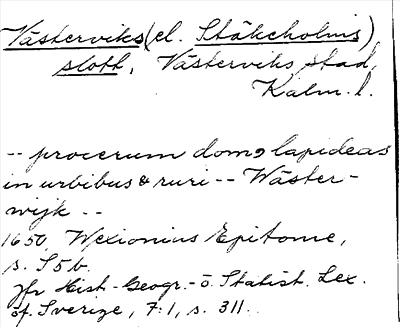 Västerviks (el. Stäkeholms)
slott, Västerviks stad,
Kalm. l.
-- procerum domq lapideas
in urbibus & ruri -- Wäster-
wijk --
1650, Wexionius Epitome,
s. S 5 b.
Jfr Hist.-Geogr.- o. Statist. Lex.
öf. Sverige, 7:1, s. 311.